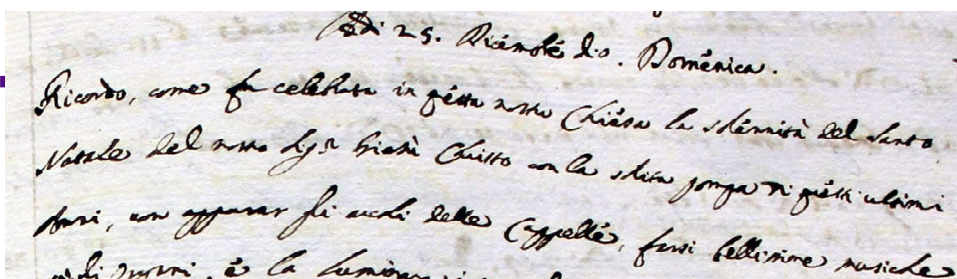 Adi 25. Dicembre d.o. Domenica.
Ricordo, come fu celebrata in questa nostra Chiesa la solennità del Santo
Natale del nostro Sig.r Giesù Christo con la solita pompa di questi ultimi
anni, con apparar gli archi delle Cappelle, farsi bellissime musiche
organi, e la